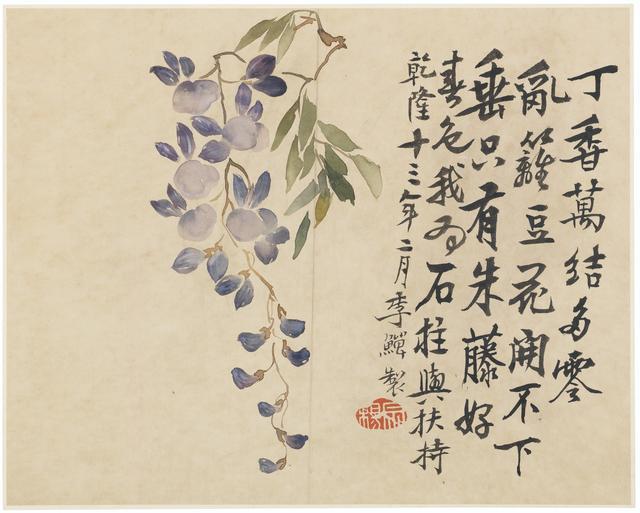 丁香萬結多零
亂籬豆花開不下
垂只有朱藤好
春色我為石柱與扶持
乾隆十三年二月李鱓製
宗揚